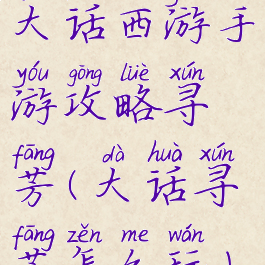 大话西游手
yóu gōng lüè xún
游攻略寻
fāng dà huà xún
芳(大话寻
fāng zěn me wán
芳怎么玩)